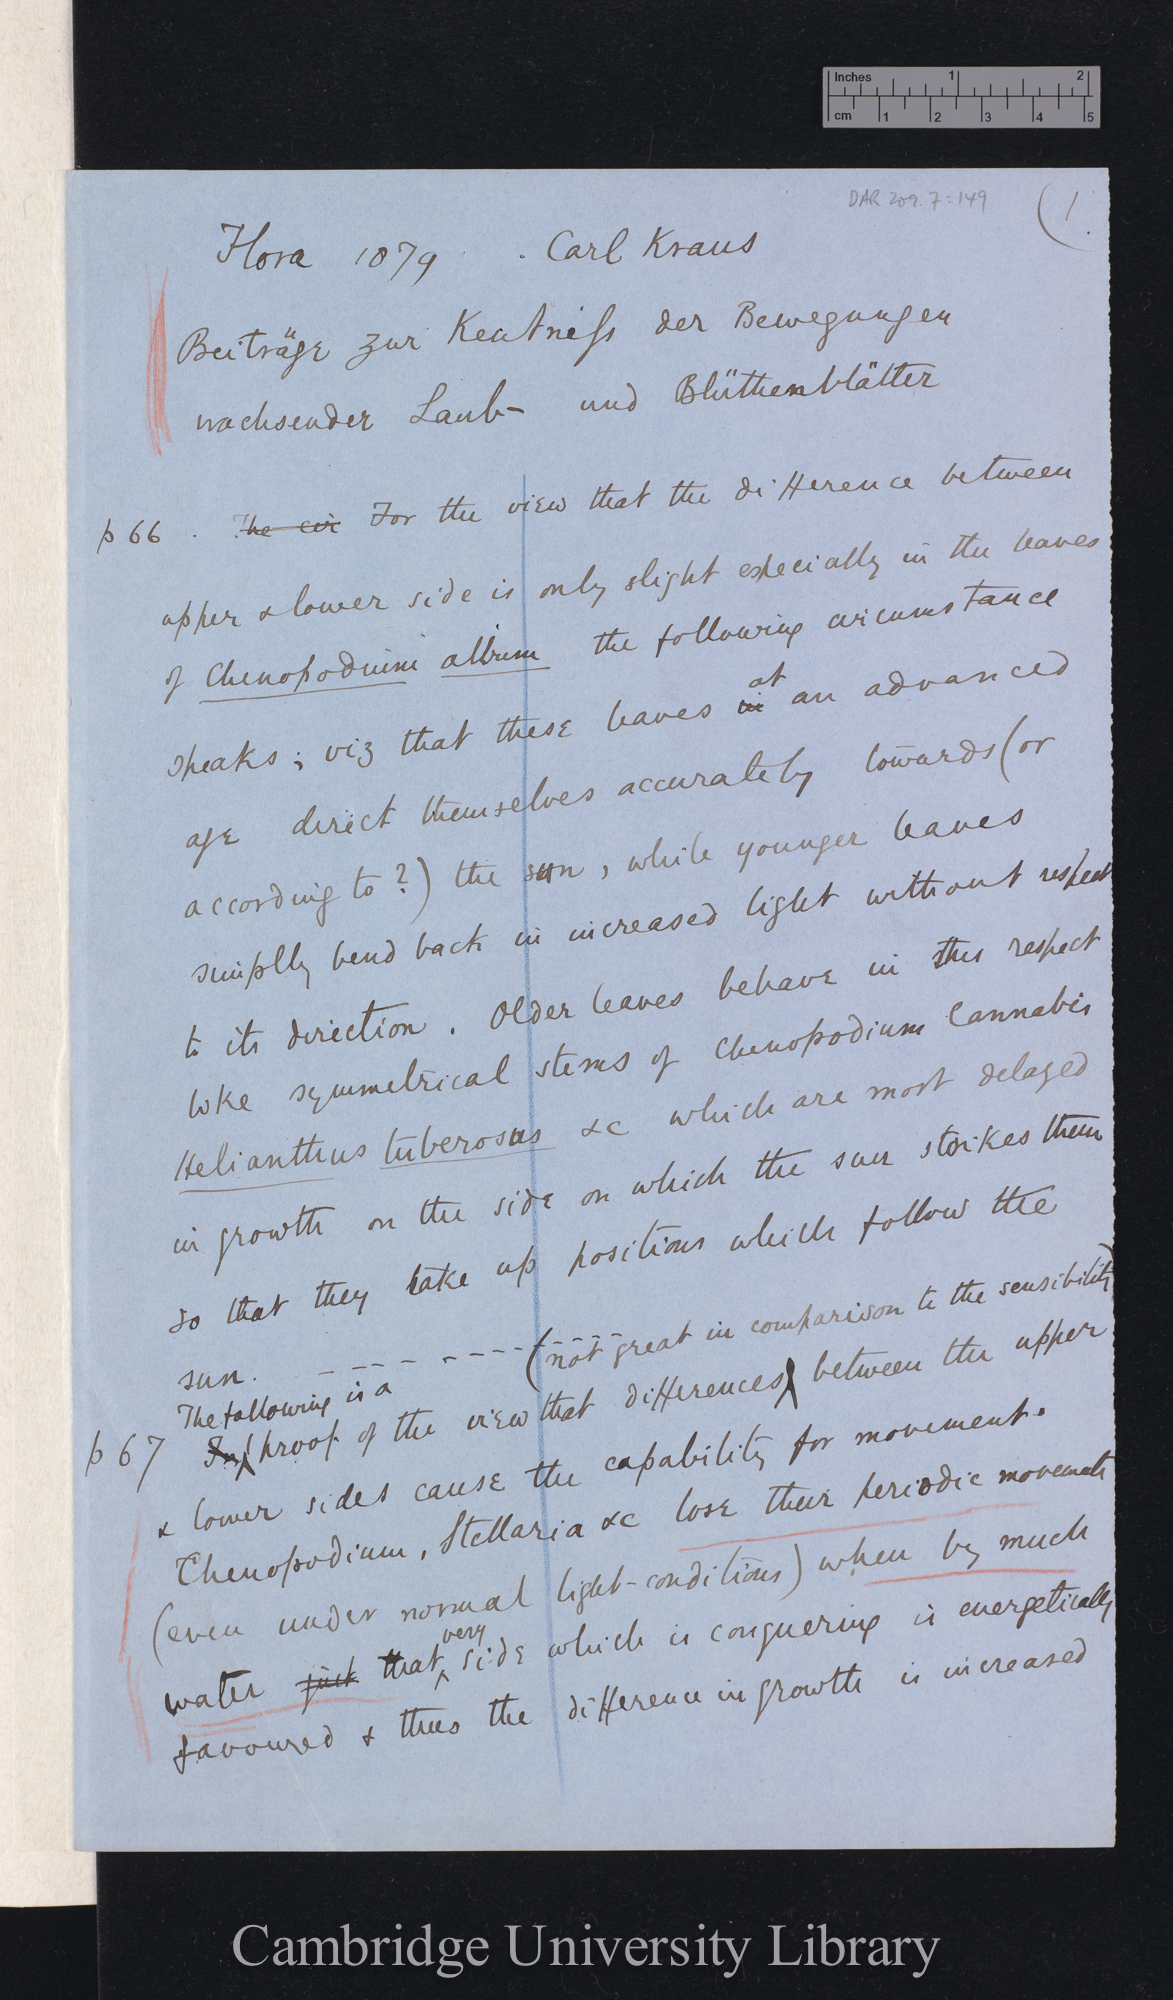 Inches 1 2
cm 1 2 3 4 5
DAR 209.7:149
(1
Flora 1879 . Carl Kraus
Beiträge zur Kentniss der Bewegungen
wachsender Laub- und Blüthenblätter
p 66 . The cir For the view that the difference between
upper & lower side is only slight especially in the leaves
of Chenopodium album the following circumstance
speaks; viz that these leaves in at an advanced
age direct themselves accurately towards (or
according to?) the sun, while younger leaves
simplly bend back in increased light without respect
to its direction. Older leaves behave in this respect
like symmetrical stems of Chenopodium Cannabis
Helianthus tuberosus &c which are most delayed
in growth on the side on which the sun strikes them
so that they take up positions which follow the
sun. - - - - - - - - - - - -
(not great in comparison to the sensibility)
The following is a
p 67 proof of the view that differences between the upper
& lower sides cause the capability for movement.
Chenopodium, Stellaria &c lose their periodic movements
(even under normal light-conditions) when by much
water just that very side which is conquering is energetically
favoured & thus the difference in growth is increased
Cambridge University Library